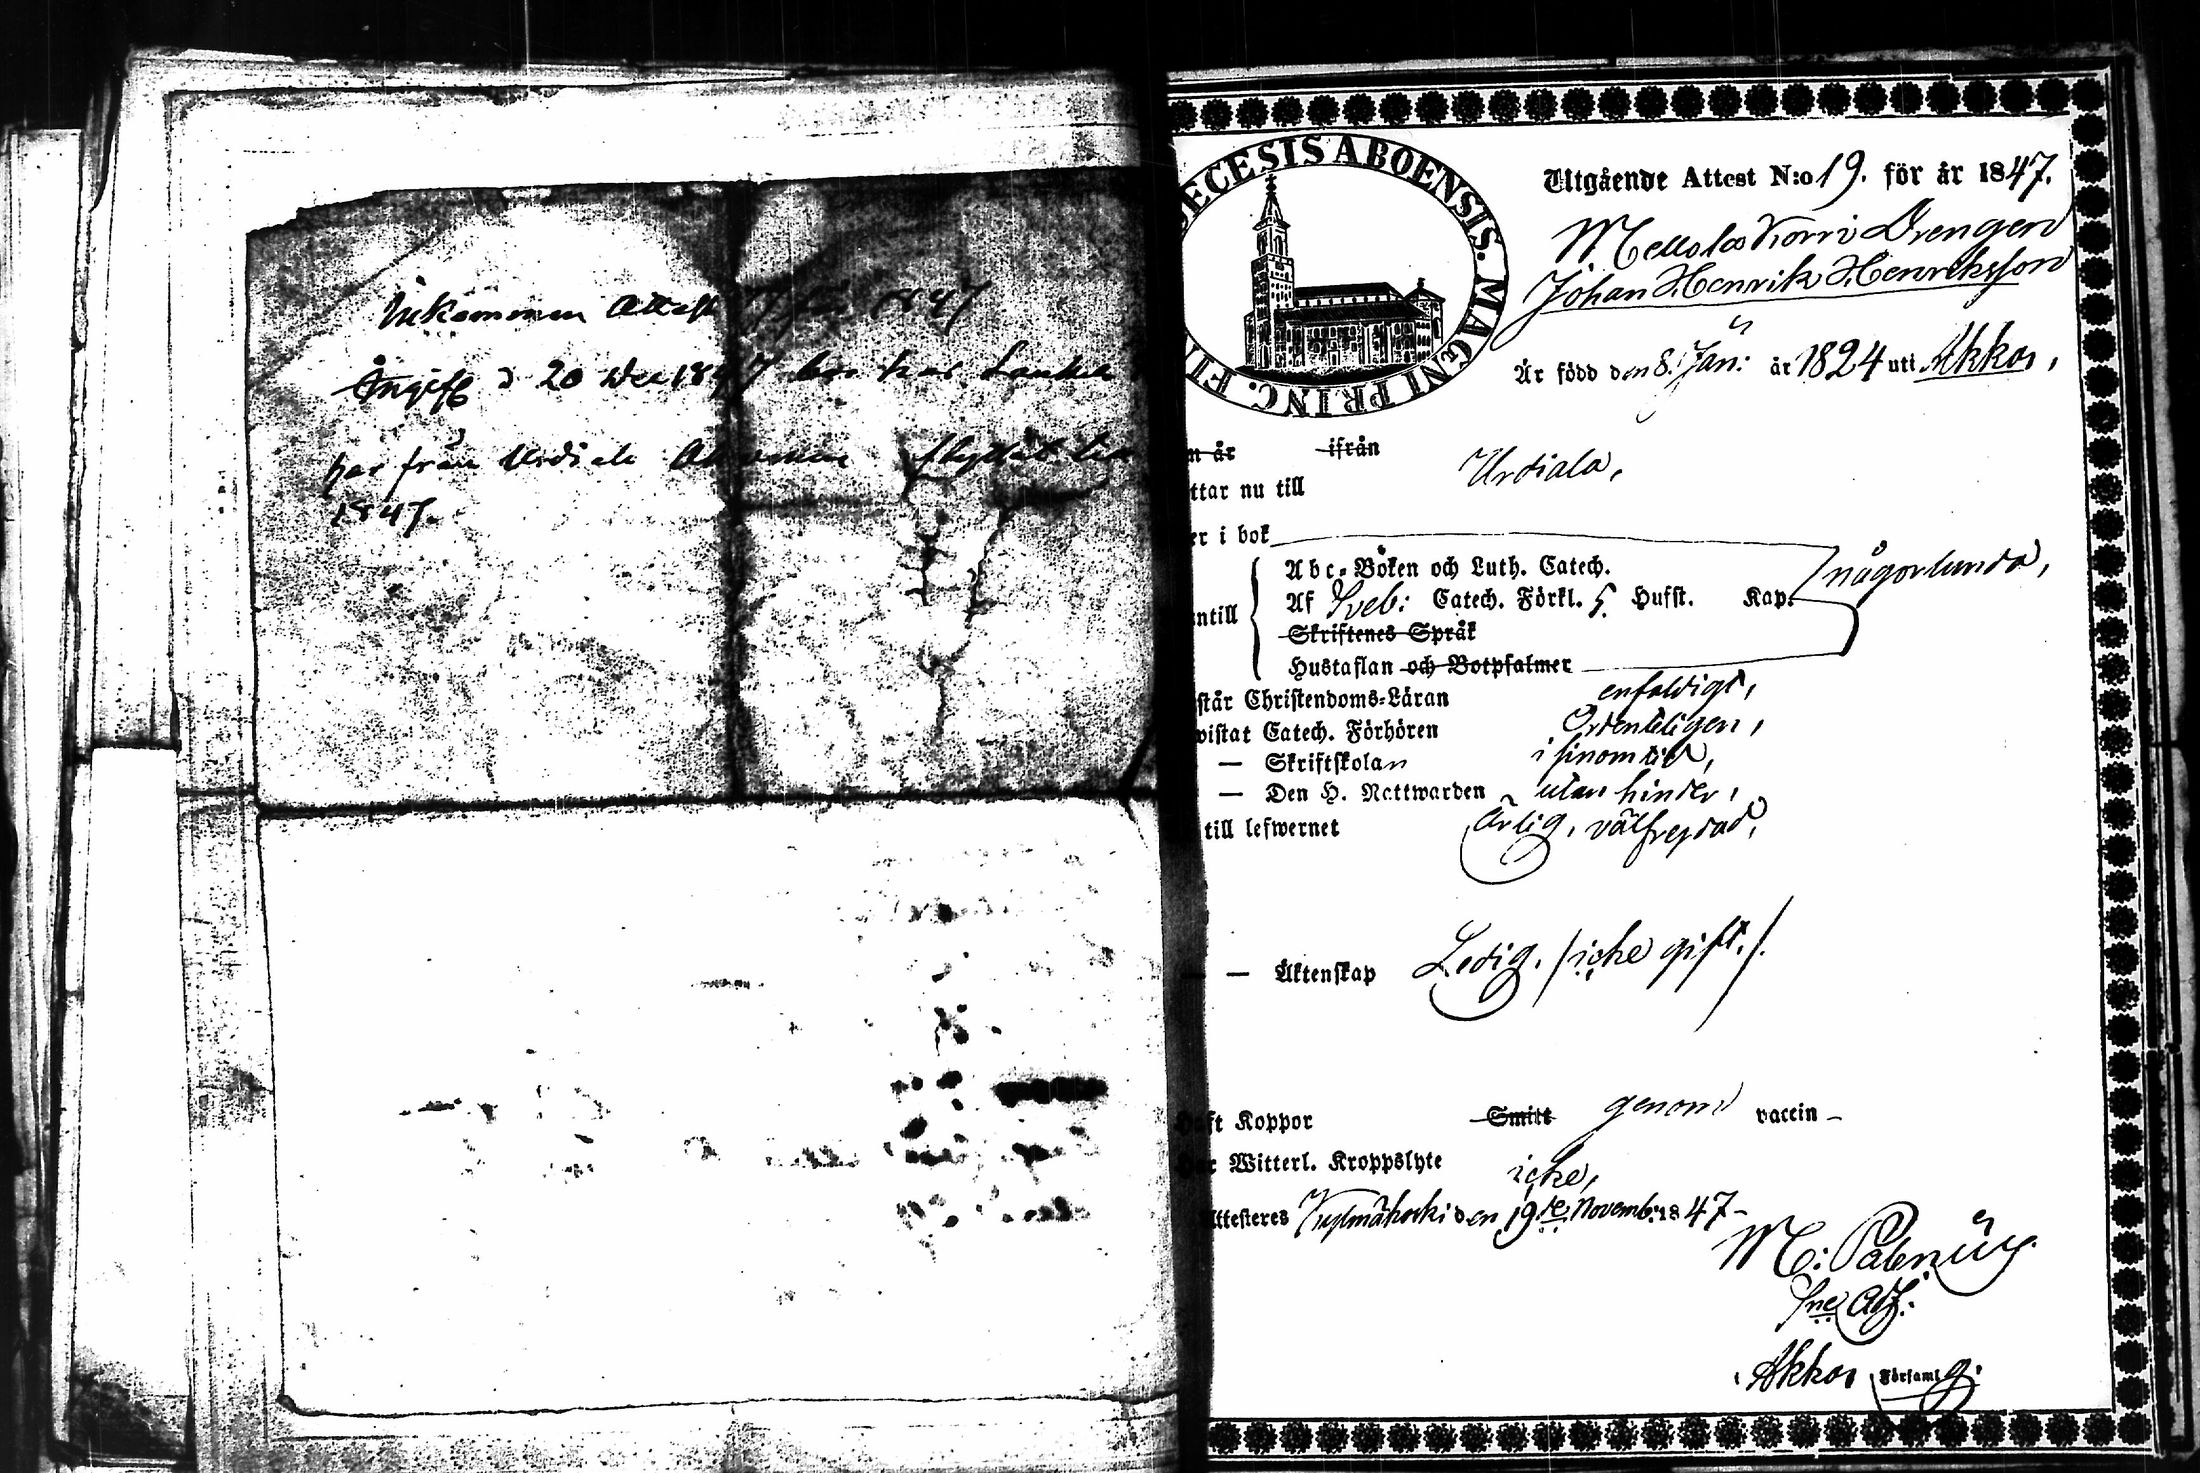 Inkommen Attest 17 för 1847
Angifv d 20 Dec 1847
här från Urdiala
1847.
ECESIS ABOENSIS. MAGNI PRINC. FI
Utgående Attest N:o 19. för år 1847.
Mellola Korri Drengen
Johan Henrik Henriksson
Är född den 8. Jan: år 1824 uti Akkas,
n år ifrån
ttar nu till Urdiala,
er i bok
ntill
Abc-Boken och Luth. Catech. någorlunda,
Af Sveb: Catech. Förkl. 5. Hufst. Kap.
Skriftenes Språk
Hustaflan och Botpsalmer
står Christendoms-Läran enfaldigt,
vistat Catech. Förhören Ordenteligen,
— Skriftskolan i sinom tid,
— Den H. Nattwarden utan hinder,
till lefwernet Ärlig, välfrejdad,
— — Äktenskap Ledig. /icke gift./.
Haft Koppor Smitt genom vaccin –
Har Witterl. Kroppslyte icke,
Attesteres Kylmäkoski den 19de Novemb: 1847–
M: Palenius
Akkas Församlg: